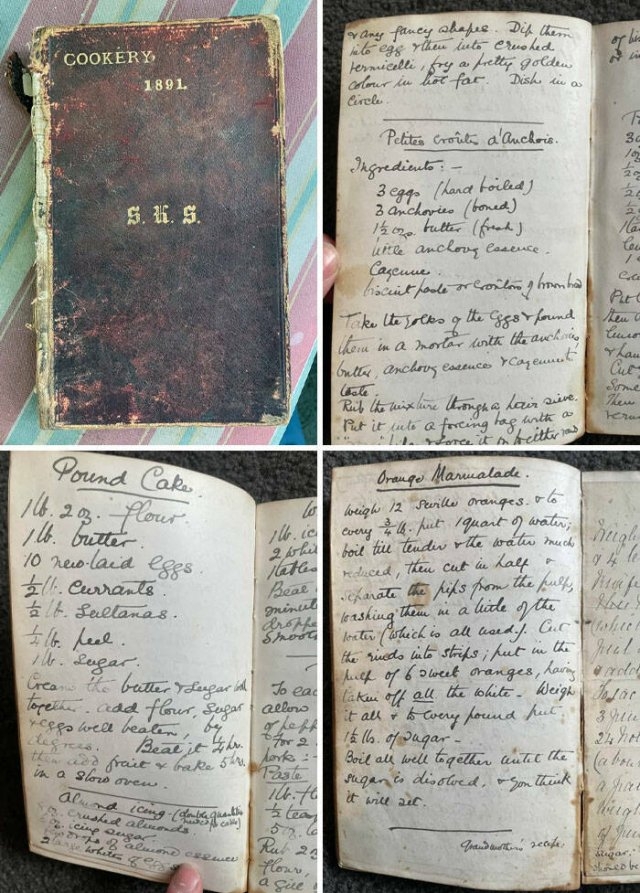 COOKERY.
1891.
S. K. S.
& any fancy shapes. Dip them
into egg & then into crushed
vermicelli, fry a pretty golden
colour in hot fat. Dish in a
circle.
Petites Croûtes d'Anchois.
Ingredients: -
3 eggs (hard boiled)
3 anchovies (boned)
1½ ozs. butter (fresh)
little anchovy essence.
Cayenne.
biscuit paste or Croûtons of brown bread
Take the yolks of the eggs & pound
them in a mortar with the anchovies,
butter, anchovy essence & cayenne to
taste.
Rub the mixture through a hair sieve.
Put it into a forcing bag with a
& force it on to either
Pound Cake.
1 lb. 2 oz. flour.
1 lb. butter.
10 new-laid eggs.
½ lb. Currants.
½ lb. Sultanas.
¼ lb. peel.
1 lb. Sugar.
Cream the butter & sugar well
together. add flour, sugar
& eggs well beaten, by
degrees. Beat it ¾ hr.
then add fruit & bake 5 hrs.
in a slow oven.
Almond icing - (double quantities
crushed almonds
icing sugar
drops of almond essence
2 large whites of eggs
1 lb. ic
2 whit
1 tables
Beat
minute
droppe
smooth
To eac
allow
of pepp
& for 2
pork: -
1 lb. fl
½ teas
5 oz.
Rub 2
flour,
a gill
Orange Marmalade.
Weigh 12 Seville oranges & to
every ¾ lb. put 1 quart of water;
boil till tender & the water much
reduced, then cut in half &
separate the pips from the pulp,
washing them in a little of the
water (which is all used.). Cut
the rinds into strips; put in the
pulp of 6 sweet oranges, having
taken off all the white - Weigh
it all & to every pound put
1½ lbs. of sugar -
Boil all well together until the
sugar is disolved, & you think
it will set.
Grandmother's recipe.